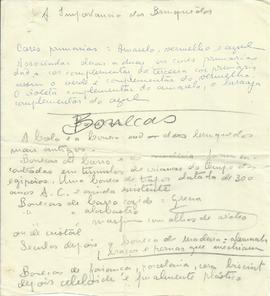 A Importancia dos Brinquedos
Cores primarias: Amarelo, vermelho e azul.
Associadas duas a duas as cores primarias
dão a cor complementar da terceira cor primária
assim o verde é complementar do vermelho.
O violeta complementar do amarelo, o laranja
complementar do azul
Bonecas
A bola e a boneca são os dois brinquedos
mais antigos.
Bonecas de barro e de madeira foram en-
contradas em tumulos de crianças do tempo dos
egipcios. Uma boneca de trapos datada de 300
anos A. C. é ainda existente
Bonecas de barro cozido - Grecia
" " alabastro
" " marfim com olhos de
ou de cristal
Seculos depois a boneca de madeira - alemanha
braços e pernas que mechiam
Bonecas de porcelana, cera, biscuit
depois celuloide e finalmente plastico